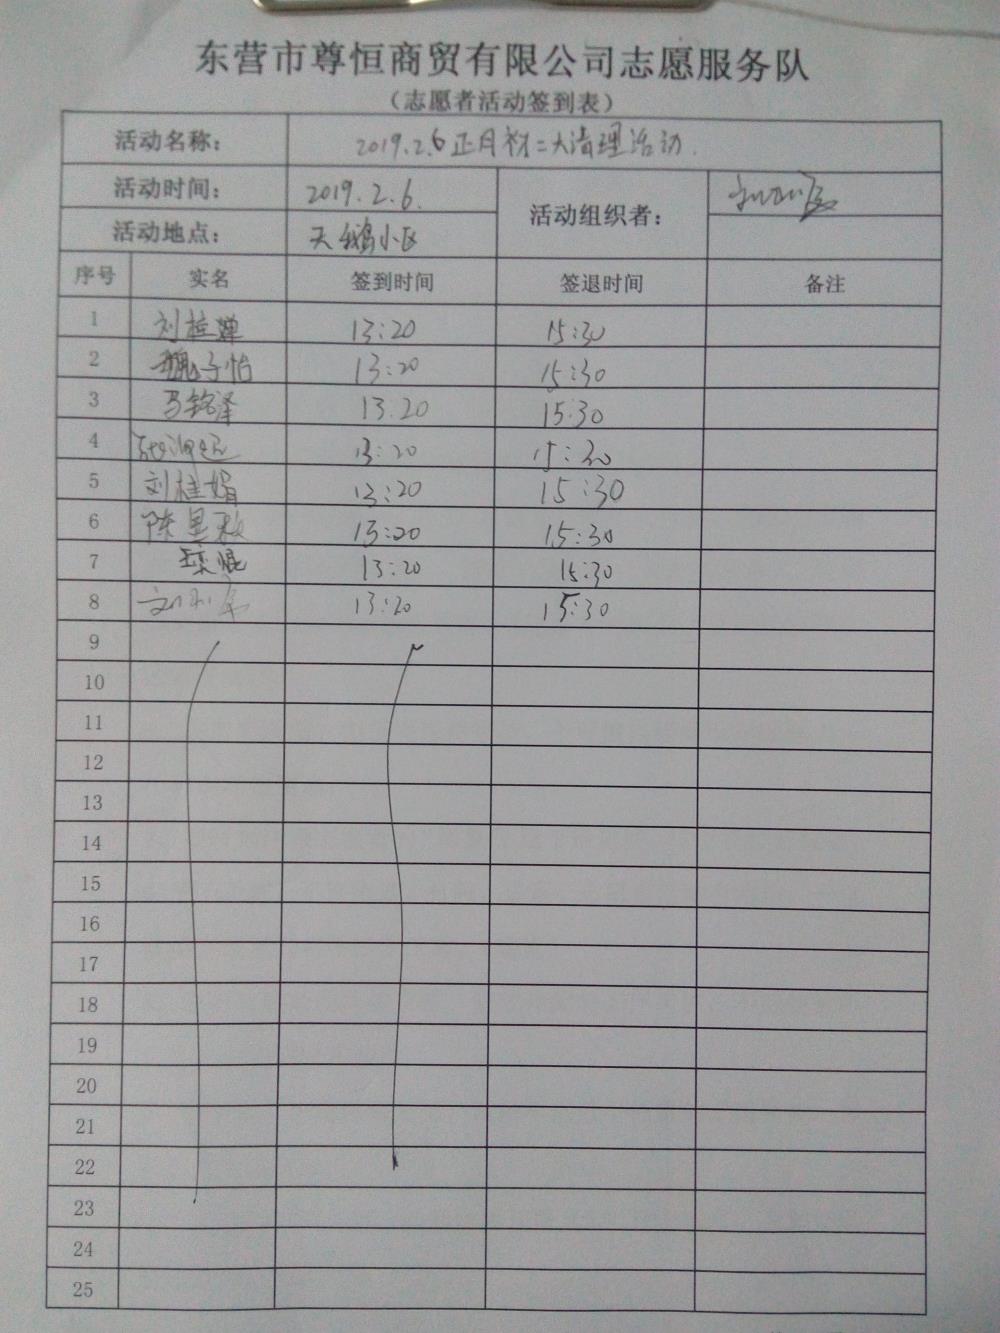 东营市尊恒商贸有限公司志愿服务队
（志愿者活动签到表）
活动名称： 2019.2.6正月初二大清理活动.
活动时间： 2019.2.6. 活动组织者：
活动地点： 天鹅小区
序号 实名 签到时间 签退时间 备注
1 刘桂婵 13:20 15:30
2 魏子怡 13:20 15:30
3 马铭泽 13:20 15:30
4 13:20 15:30
5 刘桂娟 13:20 15:30
6 陈 13:20 15:30
7 13:20 15:30
8 13:20 15:30
9
10
11
12
13
14
15
16
17
18
19
20
21
22
23
24
25